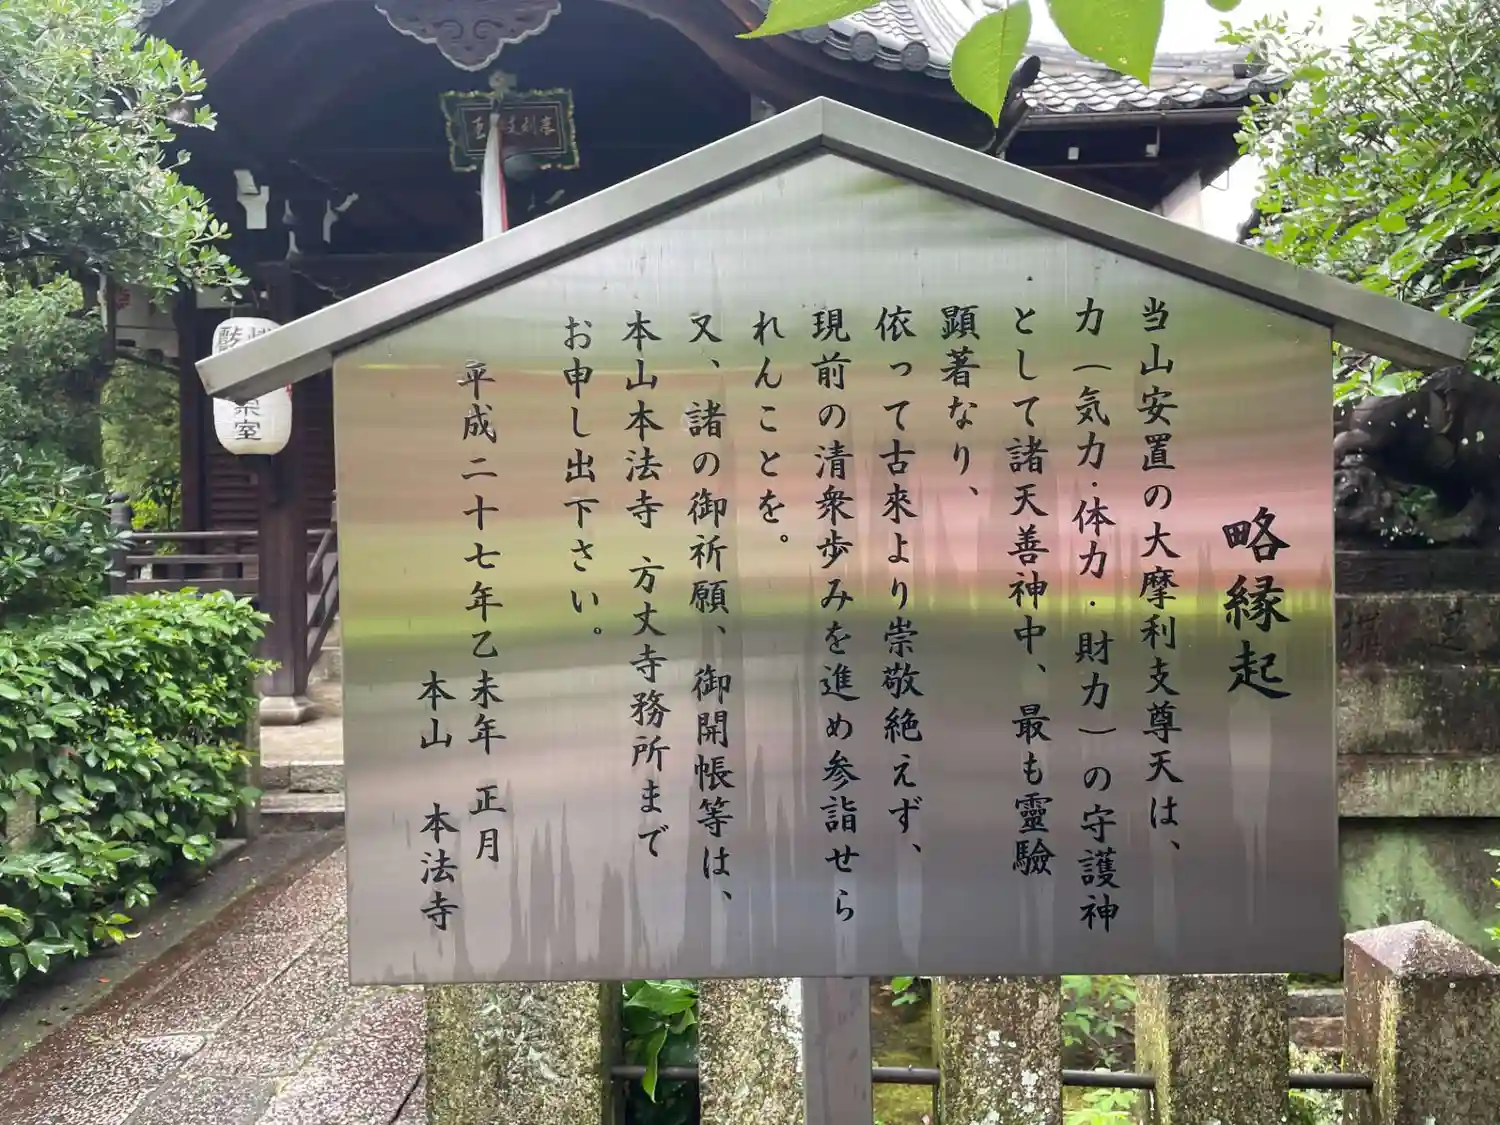 略縁起
当山安置の大摩利支尊天は、
力（気力・体力・財力）の守護神
として諸天善神中、最も靈驗
顕著なり、
依って古来より崇敬絶えず、
現前の清衆歩みを進め参詣せら
れんことを。
又、諸の御祈願、御開帳等は、
本山本法寺 方丈寺務所まで
お申し出下さい。
平成二十七年乙未年 正月
本山 本法寺